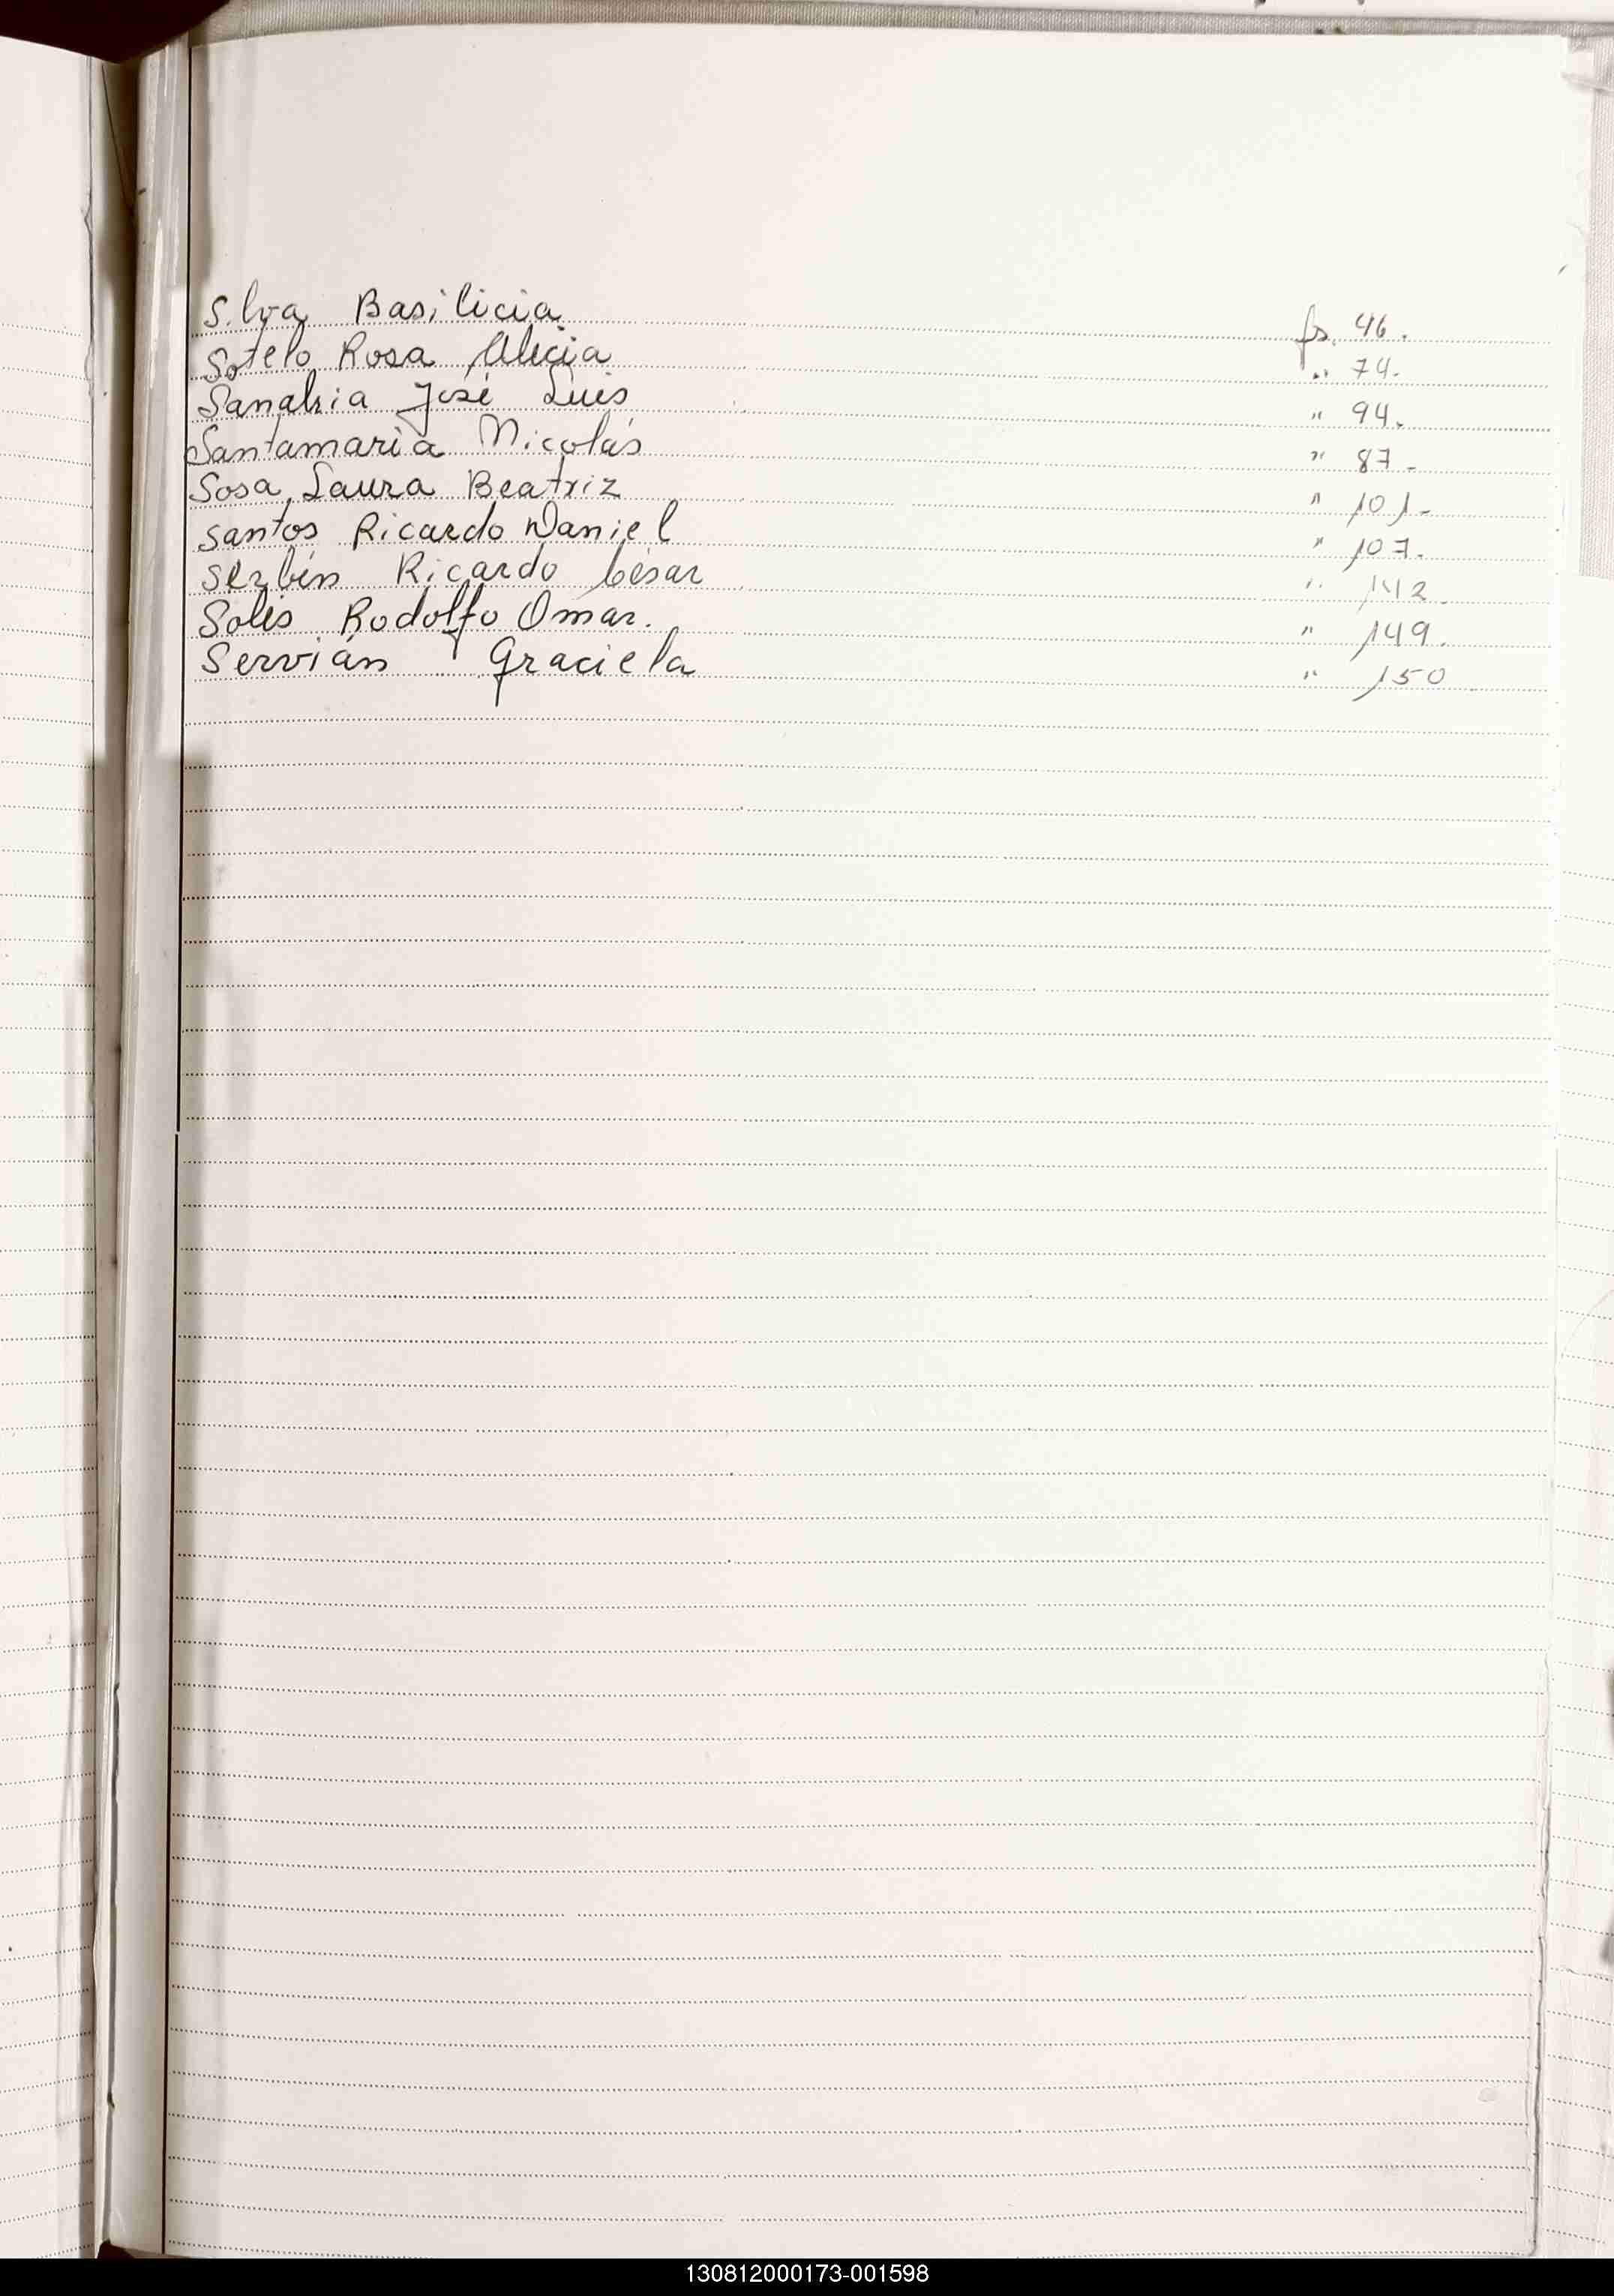 Silva Basilicia fs. 46.
Sotelo Rosa Alicia " 74.
Sanabria José Luis " 94.
Santamaria Nicolás " 87.
Sosa, Laura Beatriz " 101.
Santos Ricardo Daniel " 107.
Serbín Ricardo César " 142.
Solis Rodolfo Omar. " 149.
Servián Graciela " 150
130812000173-001598